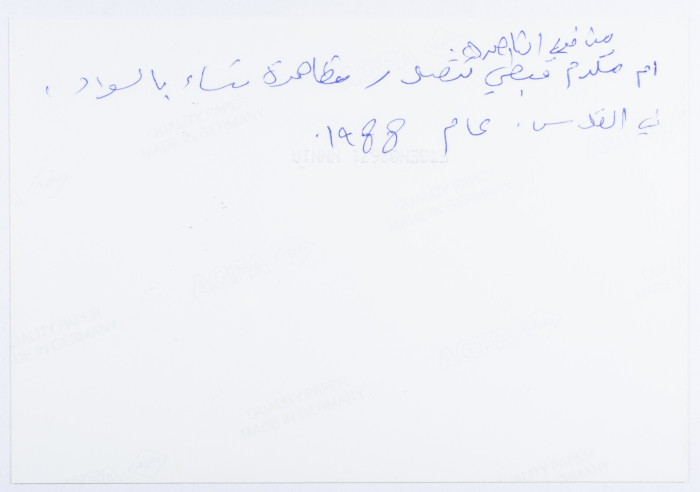 من الناصرة.
ام مكرم قبطي تتصدر مظاهرة نساء بالسواد .
في القدس . عام 1988.
QUALITY PAPER
MADE IN GERMANY
QUALITY PAPER
MADE IN GERMANY
QUALITY PAPER
MADE IN GERMANY
QUALITY PAPER
MADE IN GERMANY